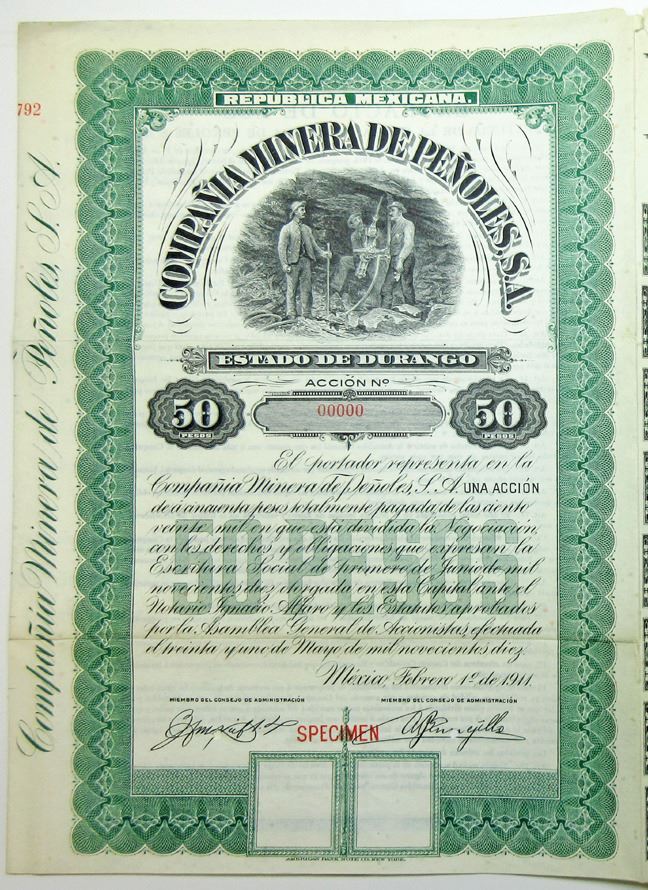 REPUBLICA MEXICANA.
792
COMPAÑIA MINERA DE PEÑOLES, S.A.
Compañia Minera de Peñoles, S. A.
ESTADO DE DURANGO
ACCIÓN Nº
50 PESOS
00000
50 PESOS
El portador representa en la
Compañia Minera de Peñoles, S. A. UNA ACCIÓN
de á cincuenta pesos totalmente pagada de las ciento
veinte mil en que está dividida la Negociación,
con los derechos y obligaciones que expresan la
Escritura Social de primero de Junio de mil
novecientos diez otorgada en esta Capital ante el
Notario Ignacio Alfaro y los Estatutos aprobados
por la Asamblea General de Accionistas, efectuada
el treinta y uno de Mayo de mil novecientos diez.
50 PESOS
México, Febrero 1º de 1911.
MIEMBRO DEL CONSEJO DE ADMINISTRACIÓN
MIEMBRO DEL CONSEJO DE ADMINISTRACIÓN
SPECIMEN
AMERICAN BANK NOTE CO. NEW YORK.